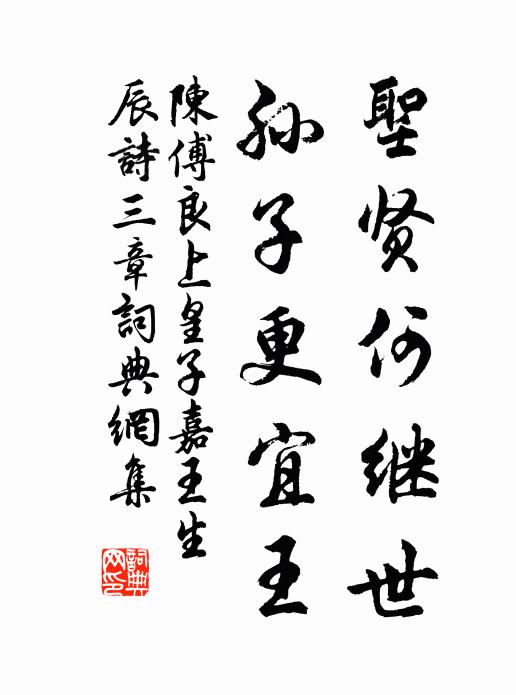 聖贤何继世
孙子更宜王
陳傅良上皇子嘉王生
辰詩三章詞典網集
詞典
网印